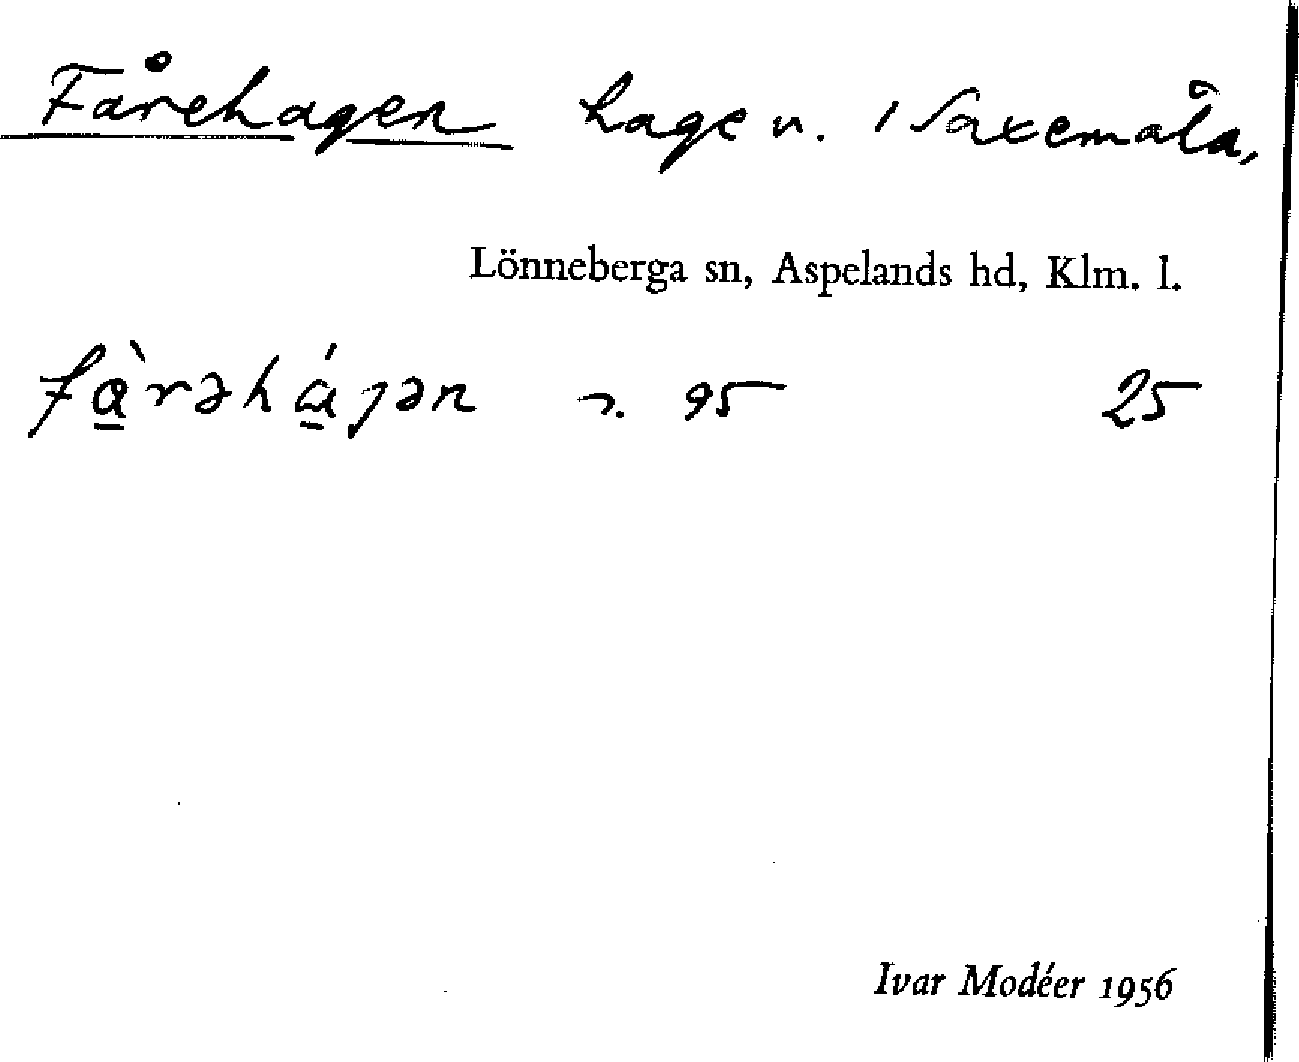 Fårehagen hage n. 1 Saxemåla,
Lönneberga sn, Aspelands hd, Klm. l.
fὰ̱rəhά̱ɡən 95 25
Ivar Modéer 1956